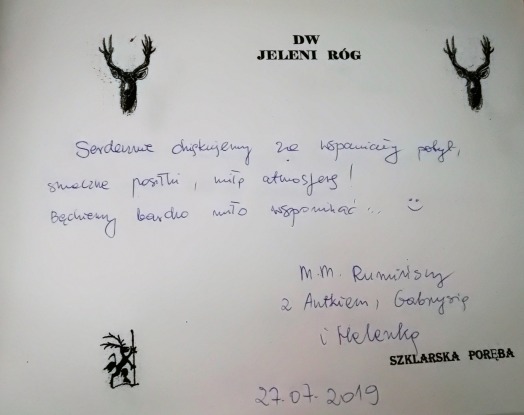 DW
JELENI RÓG
Serdecznie dziękujemy za wspaniały pobyt,
smaczne posiłki, miłą atmosferę!
Będziemy bardzo miło wspominać... :)
M.M. Rumińscy
z Antkiem, Gabrysią
i Helenką
SZKLARSKA PORĘBA
27.07.2019